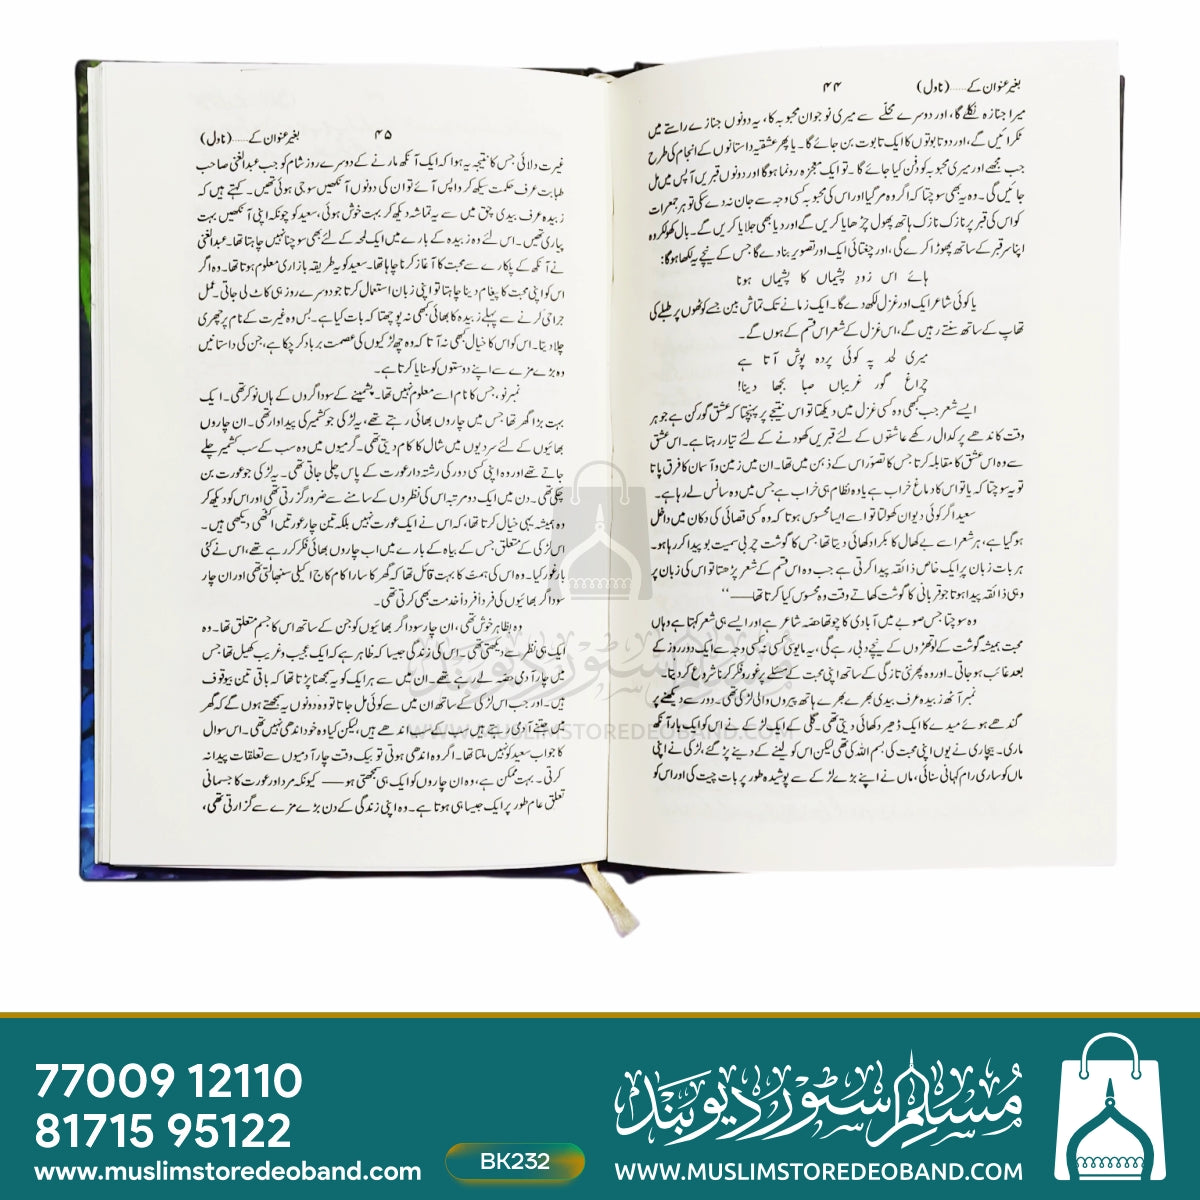 بغیر عنوان کے...... (ناول) ۴۴
میرا جنازہ نکلے گا، اور دوسرے محلّے سے میری نوجوان محبوبہ کا، یہ دونوں جنازے راستے میں
ٹکرائیں گے، اور دو تابوتوں کا ایک تابوت بن جائے گا۔ یا پھر عشقیہ داستانوں کے انجام کی طرح
جب مجھے اور میری محبوبہ کو دفن کیا جائے گا۔ تو ایک معجزہ رونما ہوگا اور دونوں قبریں آپس میں مل
جائیں گی۔ وہ یہ بھی سوچتا کہ اگر وہ مر گیا اور اس کی محبوبہ کسی وجہ سے جان نہ دے سکی تو ہر جمعرات
کو اس کی قبر پر نازک نازک ہاتھ پھول چڑھایا کریں گے اور دیا بھی جلایا کریں گے۔ بال کھول کر وہ
اپنا سر قبر کے ساتھ پھوڑا کرے گی، اور چغتائی ایک اور تصویر بنا دے گا جس کے نیچے یہ لکھا ہوگا:
ہائے اس زود پشیماں کا پشیماں ہونا
یا کوئی شاعر ایک اور غزل لکھ دے گا۔ ایک زمانے تک تماش بین جسے کوٹھوں پر طبلے کی
تھاپ کے ساتھ سنتے رہیں گے، اس غزل کے شعر اس قسم کے ہوں گے۔
میری لحد پہ کوئی پردہ پوش آتا ہے
چراغ گور غریباں صبا بجھا دینا!
ایسے شعر جب کبھی وہ کسی غزل میں دیکھتا تو اس نتیجے پر پہنچتا کہ عشق گورکن ہے جو ہر
وقت کاندھے پر کدال رکھے عاشقوں کے لئے قبریں کھودنے کے لئے تیار رہتا ہے۔ اس عشق
سے وہ اس عشق کا مقابلہ کرتا جس کا تصوّر اس کے ذہن میں تھا۔ ان میں زمین و آسمان کا فرق پاتا
تو یہ سوچتا کہ یا تو اس کا دماغ خراب ہے یا وہ نظام ہی خراب ہے جس میں وہ سانس لے رہا ہے۔
سعید اگر کوئی دیوان کھولتا تو اسے ایسا محسوس ہوتا کہ وہ کسی قصائی کی دکان میں داخل
ہو گیا ہے، ہر شعر اسے بے کھال کا بکرا دکھائی دیتا تھا جس کا گوشت چربی سمیت بو پیدا کر رہا ہو۔
ہر بات زبان پر ایک خاص ذائقہ پیدا کرتی ہے جب وہ اس قسم کے شعر پڑھتا تو اس کی زبان پر
وہی ذائقہ پیدا ہوتا جو قربانی کا گوشت کھاتے وقت وہ محسوس کیا کرتا تھا——‘‘
وہ سوچتا جس صوبے میں آبادی کا چوتھا حصّہ شاعر ہے اور ایسے ہی شعر کہتا ہے وہاں
محبت ہمیشہ گوشت کے لوتھڑوں کے نیچے دبی رہے گی، یہ مایوسی کسی نہ کسی وجہ سے ایک دو روز کے
بعد غائب ہو جاتی۔ اور وہ پھر نئی تازگی کے ساتھ اپنی محبت کے مسئلے پر غور و فکر کرنا شروع کر دیتا۔
نمبر آٹھ زبیدہ عرف بیدی بھرے بھرے ہاتھ پیروں والی لڑکی تھی۔ دور سے دیکھنے پر
گندھے ہوئے میدے کا ایک ڈھیر دکھائی دیتی تھی۔ گلی کے ایک لڑکے نے اس کو ایک بار آنکھ
ماری۔ بیچاری نے یوں اپنی محبت کی بسم اللہ کی تھی لیکن اس کو لینے کے دینے پڑ گئے، لڑکی نے اپنی
ماں کو ساری رام کہانی سنائی، ماں نے اپنے بڑے لڑکے سے پوشیدہ طور پر بات چیت کی اور اس کو
بغیر عنوان کے...... (ناول) ۴۵
غیرت دلائی جس کا نتیجہ یہ ہوا کہ ایک آنکھ مارنے کے دوسرے روز شام کو جب عبد الغنی صاحب
طبابت عرف حکمت سیکھ کر واپس آئے تو ان کی دونوں آنکھیں سوجی ہوئی تھیں۔ کہتے ہیں کہ
زبیدہ عرف بیدی چق میں سے یہ تماشہ دیکھ کر بہت خوش ہوئی، سعید کو چونکہ اپنی آنکھیں بہت
پیاری تھیں۔ اس لئے وہ زبیدہ کے بارے میں ایک لمحہ کے لئے بھی سوچنا نہیں چاہتا تھا۔ عبد الغنی
نے آنکھ کے پلکارے سے محبت کا آغاز کرنا چاہا تھا۔ سعید کو یہ طریقہ بازاری معلوم ہوتا تھا۔ وہ اگر
اس کو اپنی محبت کا پیغام دینا چاہتا تو اپنی زبان استعمال کرتا جو دوسرے روز ہی کاٹ لی جاتی۔ عمل
جراحی کرنے سے پہلے زبیدہ کا بھائی کبھی نہ پوچھتا کہ بات کیا ہے۔ بس وہ غیرت کے نام پر چھری
چلا دیتا۔ اس کو اس کا خیال کبھی نہ آتا کہ وہ چھ لڑکیوں کی عصمت برباد کر چکا ہے، جن کی داستانیں
وہ بڑے مزے سے اپنے دوستوں کو سنایا کرتا ہے۔
نمبر نو، جس کا نام اسے معلوم نہیں تھا۔ پشمینے کے سوداگروں کے ہاں نوکر تھی۔ ایک
بہت بڑا گھر تھا جس میں چاروں بھائی رہتے تھے، یہ لڑکی جو کشمیر کی پیداوار تھی۔ ان چاروں
بھائیوں کے لئے سردیوں میں شال کا کام دیتی تھی۔ گرمیوں میں وہ سب کے سب کشمیر چلے
جاتے تھے اور وہ اپنی کسی دور کی رشتہ دار عورت کے پاس چلی جاتی تھی۔ یہ لڑکی جو عورت بن
چکی تھی۔ دن میں ایک دو مرتبہ اس کی نظروں کے سامنے سے ضرور گزرتی تھی اور اس کو دیکھ کر
وہ ہمیشہ یہی خیال کرتا تھا، کہ اس نے ایک عورت نہیں بلکہ تین چار عورتیں اکٹھی دیکھی ہیں۔
اس لڑکی کے متعلق جس کے بیاہ کے بارے میں اب چاروں بھائی فکر کر رہے تھے، اس نے کئی
بار غور کیا۔ وہ اس کی ہمت کا بہت قائل تھا کہ گھر کا سارا کام کاج اکیلی سنبھالتی تھی اور ان چار
سوداگر بھائیوں کی فرداً فرداً خدمت بھی کرتی تھی۔
وہ بظاہر خوش تھی، ان چار سوداگر بھائیوں کو جن کے ساتھ اس کا جسم متعلق تھا۔ وہ
ایک ہی نظر سے دیکھتی تھی۔ اس کی زندگی جیسا کہ ظاہر ہے کہ ایک عجیب و غریب کھیل تھا جس
میں چار آدمی حصّہ لے رہے تھے۔ ان میں سے ہر ایک کو یہ سمجھنا پڑتا تھا کہ باقی تین بیوقوف
ہیں۔ اور جب اس لڑکی کے ساتھ ان میں سے کوئی مل جاتا تو وہ دونوں یہ سمجھتے ہوں گے کہ گھر
میں جتنے آدمی رہتے ہیں سب کے سب اندھے ہیں، لیکن کیا وہ خود اندھی نہیں تھی۔ اس سوال
کا جواب سعید کو نہیں ملتا تھا۔ اگر وہ اندھی ہوتی تو بیک وقت چار آدمیوں سے تعلقات پیدا نہ
کرتی۔ بہت ممکن ہے، وہ ان چاروں کو ایک ہی سمجھتی ہو—— کیونکہ مرد اور عورت کا جسمانی
تعلق عام طور پر ایک جیسا ہی ہوتا ہے۔ وہ اپنی زندگی کے دن بڑے مزے سے گزارتی تھی،
مسلم سٹور دیوبند
WWW.MUSLIMSTOREDEOBAND.COM
77009 12110
81715 95122
www.muslimstoredeoband.com
BK232
مسلم سٹور دیوبند
WWW.MUSLIMSTOREDEOBAND.COM